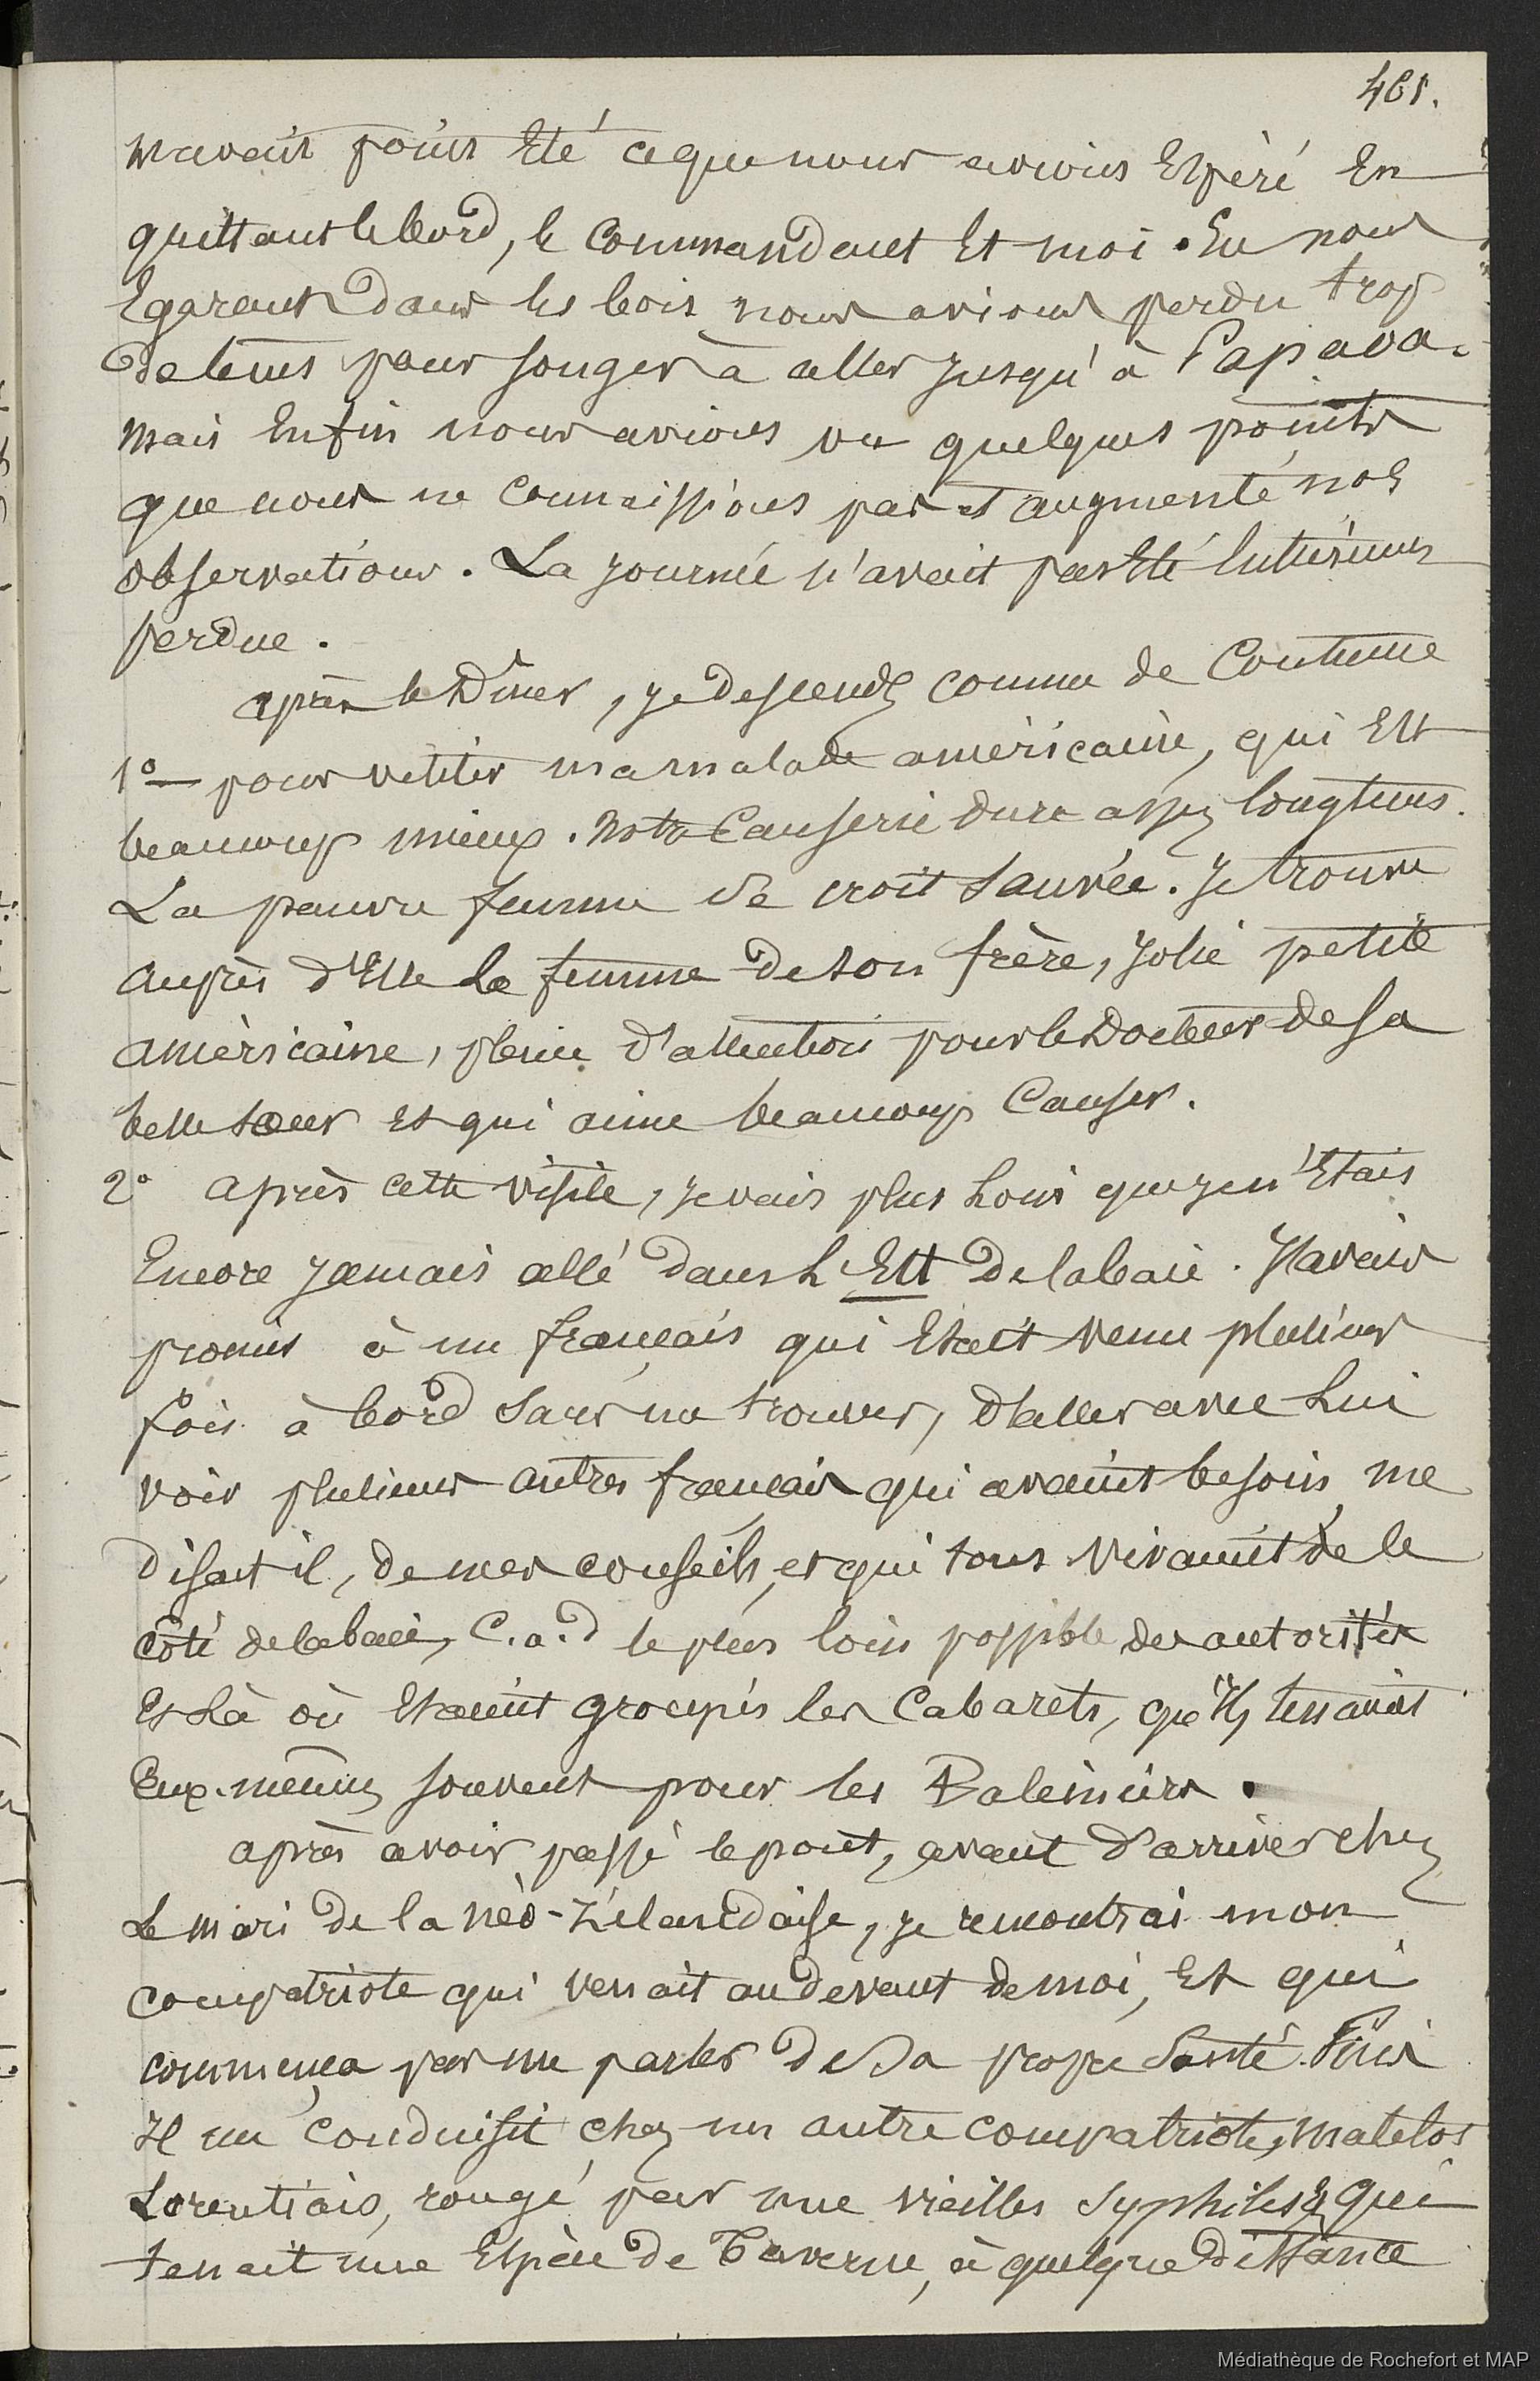 461.
n'avait point Eté ce que nous avions Espéré En
quittant le bord, le Commandant Et moi. En nous
Egarant dans les bois nous avions perdu trop
de tems pour songer à aller jusqu'à Papava.
mais Enfin nous avions vu quelques points
que nous ne Connaissions pas et augmenté nos
observations. La journée n'avait pas Eté Entièremt
perdue.
après le Dîner, je descends comme de Coutume
1o pour visiter ma malade américaine, qui Est
beaucoup mieux. Notre Causerie dure assez longtems.
La pauvre femme se croit sauvée. Je trouve
auprès d'Elle la femme de son frère, jolie petite
américaine, pleine d'attention pour le Docteur de sa
belle sœur et qui aime beaucoup Causer.
2o après cette visite, je vais plus Loin que je n'Etais
Encore jamais allé dans L'Est de la baie. J'avais
promis à un français qui Etait venu plusieurs
fois à bord sans me trouver, d'aller avec Lui
voir plusieurs autres français qui avaient besoin, me
disait il, de mes conseils, et qui tous vivaient de le
Côté de la baie, C.a.d le plus loin possible des autorités
Et Là où Etaient groupés les Cabarets, qu'ils tenaient
Eux-mêmes souvent pour les Baleiniers.
après avoir passé le pont, avant d'arriver chez
Le mari de la néo-Zélandaise, je rencontrai mon
compatriote qui venait au devant de moi, Et qui
commença par me parler de sa propre Santé. Puis
Il me Conduisit chez un autre compatriote, matelot
Lorentiais, rongé par une vieilles Syphilis, & qui
tenait une Espèce de Taverne, à quelque distance
Médiathèque de Rochefort et MAP